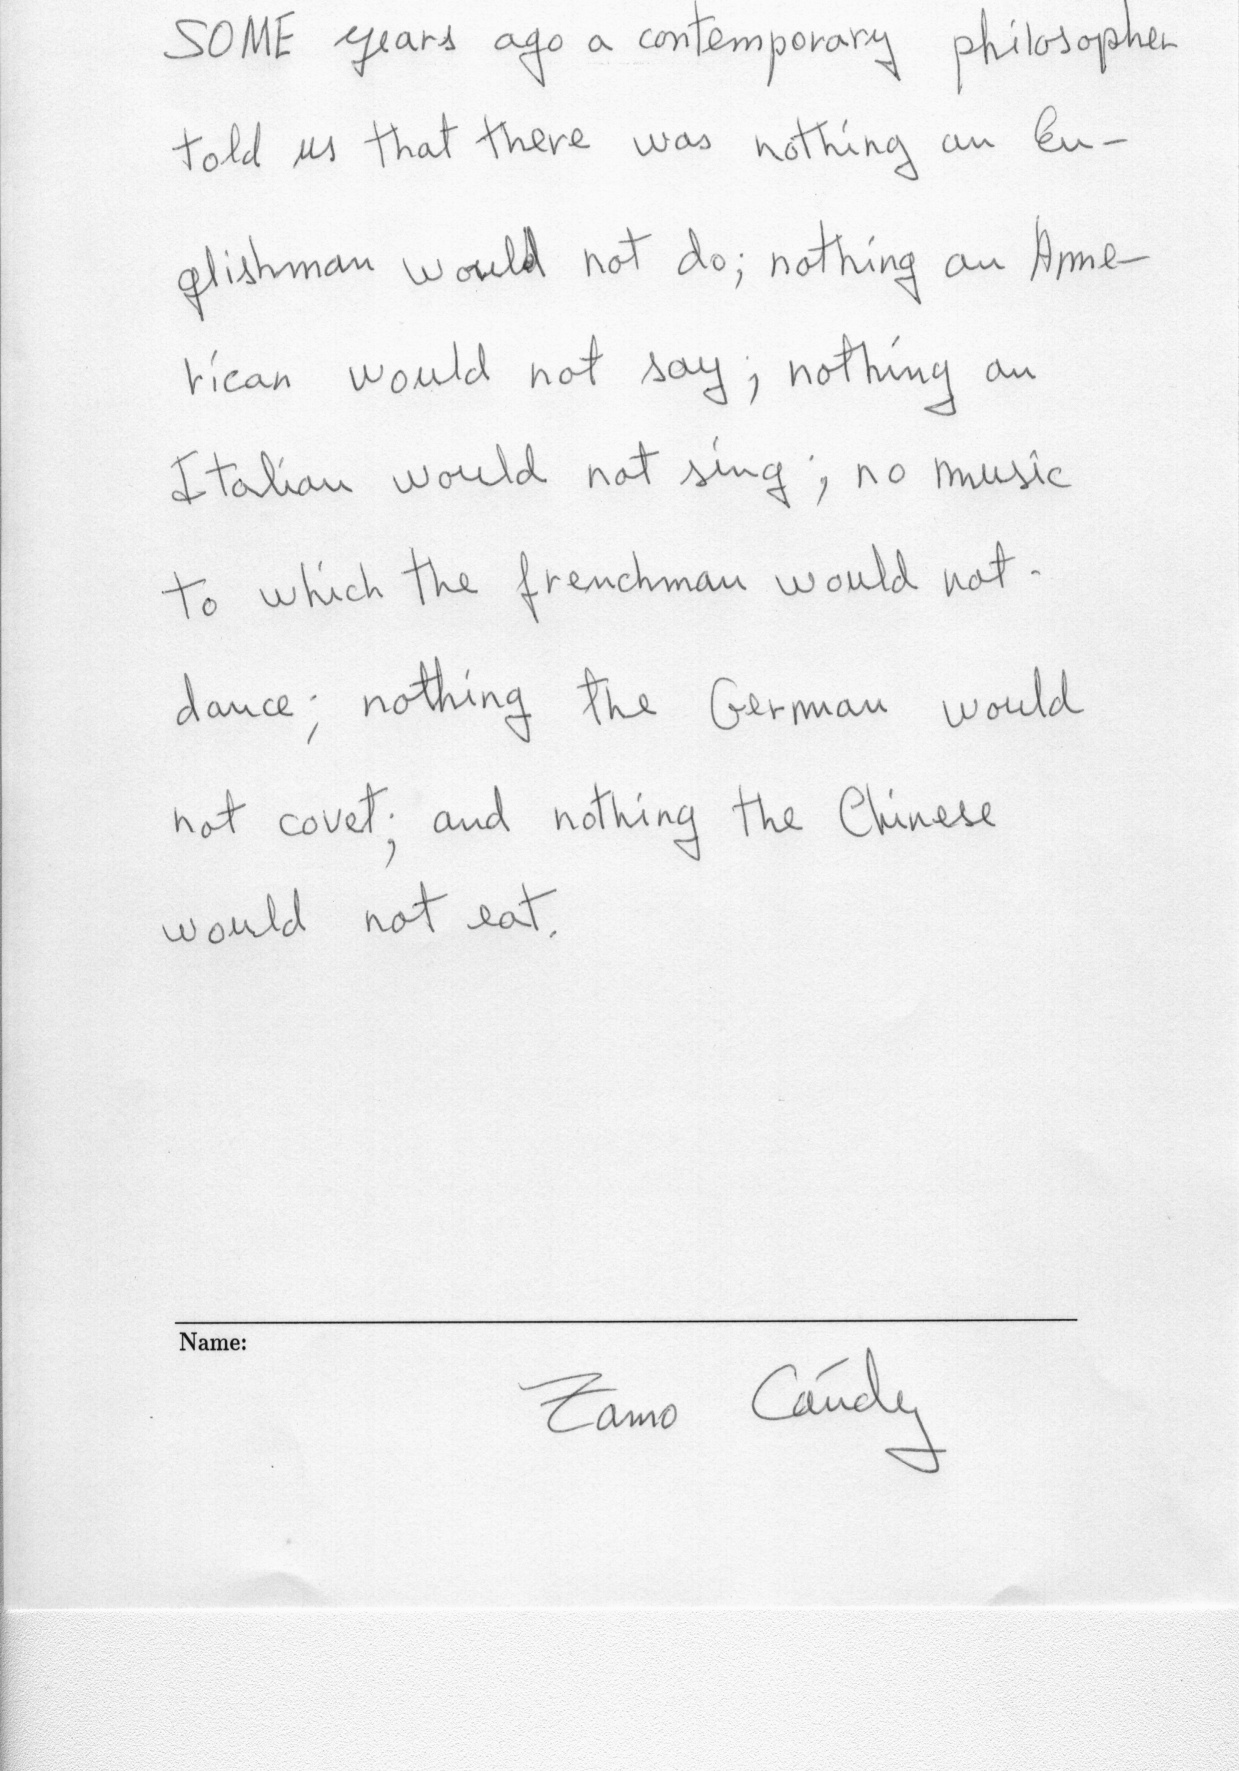 SOME years ago a contemporary philosopher
told us that there was nothing an En-
glishman would not do; nothing an Ame-
rican would not say; nothing an
Italian would not sing; no music
to which the frenchman would not
dance; nothing the German would
not covet; and nothing the Chinese
would not eat.
Name: